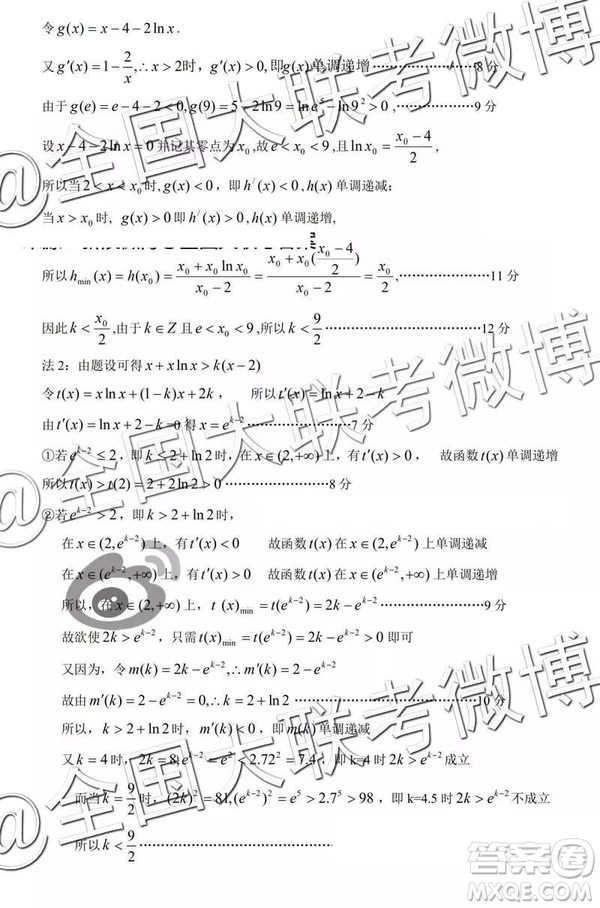 令g(x)=x-4-2lnx.
又g′(x)=1-2/x,∴x>2时, g′(x)>0,即g(x)单调递增……………………8分
由于g(e)=e-4-2<0,g(9)=5-2ln9=lne⁵-ln9²>0 ,……………9分
设x-4-2lnx=0并记其零点为x₀,故e<x₀<9,且lnx₀=(x₀-4)/2,
所以当2<x<x₀时,g(x)<0，即h′(x)<0,h(x)单调递减;
当x>x₀时, g(x)>0即h′(x)>0,h(x)单调递增,
所以h_min(x)=h(x₀)=(x₀+x₀lnx₀)/(x₀-2)=(x₀+x₀((x₀-4)/2))/(x₀-2)=x₀/2,………………11分
因此k<x₀/2,由于k∈Z且e<x₀<9,所以k<9/2……………………………12分
法2：由题设可得x+xlnx>k(x-2)
令t(x)=xlnx+(1-k)x+2k， 所以t′(x)=lnx+2-k
由t′(x)=lnx+2-k=0得x=e^(k-2)……………………7分
①若e^(k-2)≤2，即k≤2+ln2时，在x∈(2,+∞)上，有t′(x)>0， 故函数t(x)单调递增
所以t(x)>t(2)=2+2ln2……………………8分
②若e^(k-2)>2，即k>2+ln2时，
在x∈(2,e^(k-2))上，有t′(x)<0 故函数t(x)在x∈(2,e^(k-2))上单调递减
在x∈(e^(k-2),+∞)上，有t′(x)>0 故函数t(x)在x∈(e^(k-2),+∞)上单调递增
所以，在x∈(2,+∞)上，t (x)_min=t(e^(k-2))=2k-e^(k-2)……………………9分
故欲使2k>e^(k-2)，只需t(x)_min=t(e^(k-2))=2k-e^(k-2)>0即可
又因为，令m(k)=2k-e^(k-2),∴m′(k)=2-e^(k-2)
故由m′(k)=2-e^(k-2)=0,∴k=2+ln2……………………………………10分
所以，k>2+ln2时，m′(k)<0，即m(k)单调递减
又k=4时，2k=8,e^(k-2)=e²<2.72²=7.4，即k=4时2k>e^(k-2)成立
而当k=9/2时，(2k)²=81,(e^(k-2))²=e⁵>2.7⁵>98，即k=4.5时2k>e^(k-2)不成立
所以k<9/2……………………………
@全国大联考微博
@全国大联考微博
@全国大联考微博
答案卷
MXQE.COM